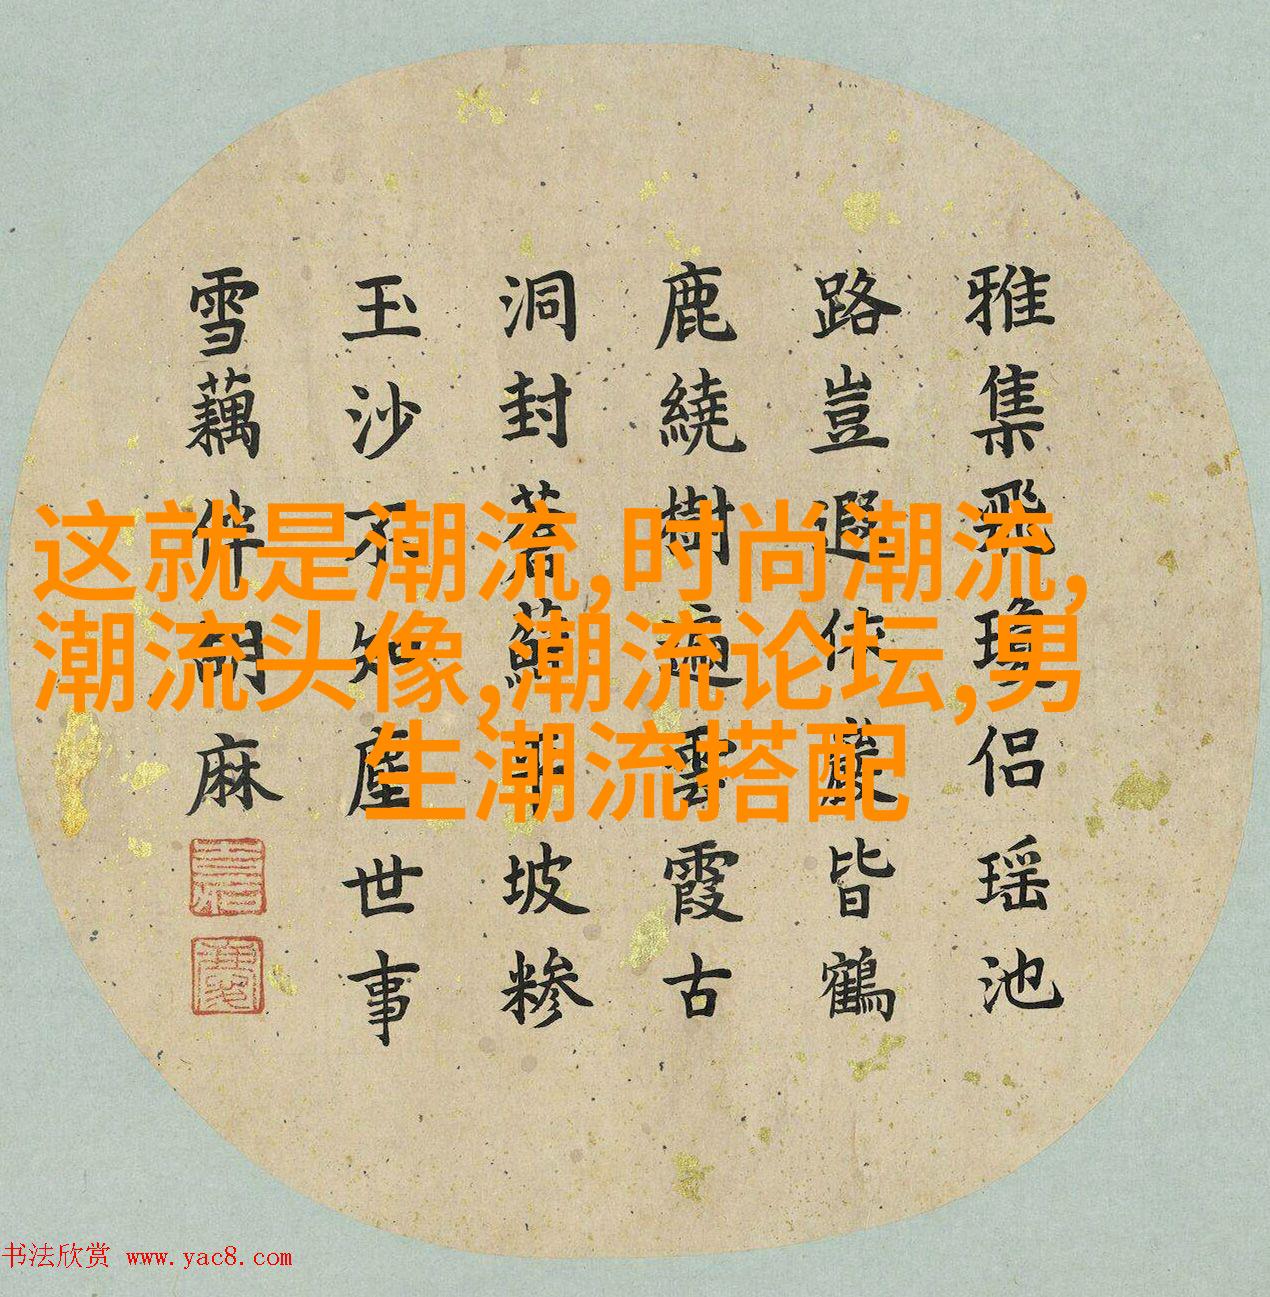 雅集飛瓊侶瑶池
路豈遐皆鶴
鹿繞樹遍雲霞古
洞封蒼蘚平坡糝
玉沙不知塵世事
雪藕伴胡麻
这就是潮流,时尚潮流,
潮流头像,潮流论坛,男
生潮流搭配
书法欣赏 www.yac8.com